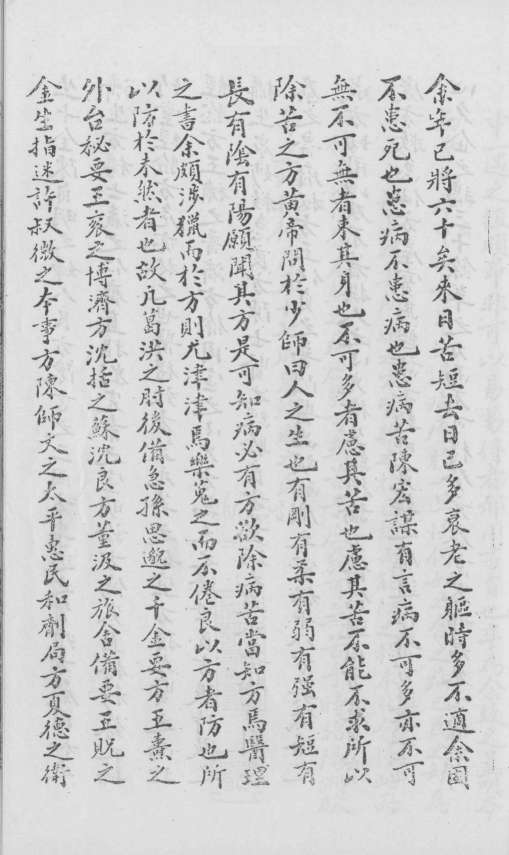 余年已將六十矣來日苦短去日已多衰老之軀時多不適余固
不患死也患病不患病也患病苦陳宏謀有言病不可多亦不可
無不可無者来其身也不可多者慮其苦也慮其苦不能不求所以
除苦之方黄帝問於少師曰人之生也有剛有柔有弱有强有短有
長有陰有陽願聞其方是可知病必有方欲除病苦當知方焉醫理
之書余頗涉獵而於方則尤津津焉樂蒐之而不倦良以方者防也所
以防於未然者也故凡葛洪之肘後備急孫思邈之千金要方王燾之
外台秘要王衮之博濟方沈括之蘇沈良方董汲之旅舍備要王貺之
金生指迷許叔微之本事方陳師文之太平惠民和劑局方夏德之衛